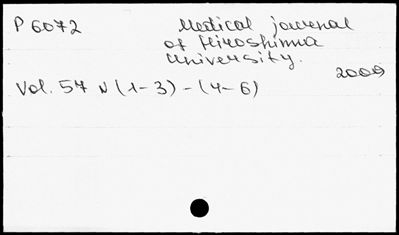 P 6072 Medical journal
of Hiroshima
University.
2009
Vol. 57 N (1-3) - (4-6)